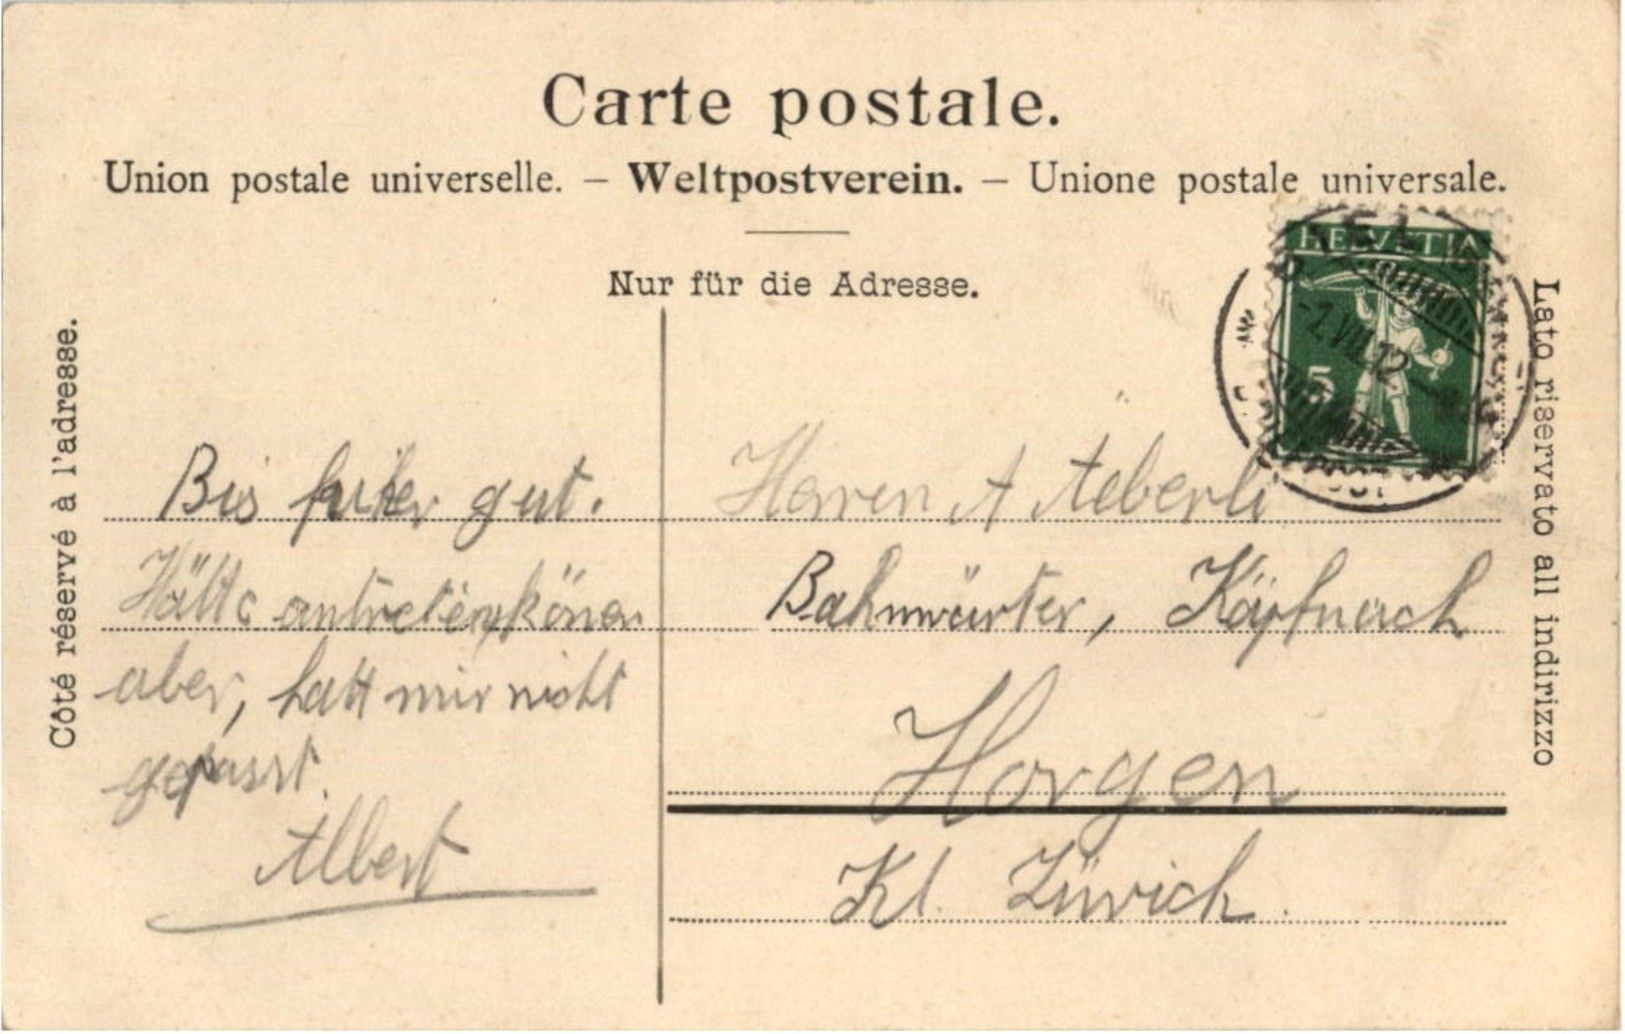 Carte postale.
Union postale universelle. – Weltpostverein. – Unione postale universale.
Nur für die Adresse.
Côté réservé à l'adresse.
Lato riservato all indirizzo
HELVETIA
5
VII. 12
Bis hieher gut.
Hätte antreten können
aber, hatt mir nicht
gepasst.
Albert
Herren A Aeberli
Bahnwärter, Käpfnach
Horgen
Kt. Zürich.